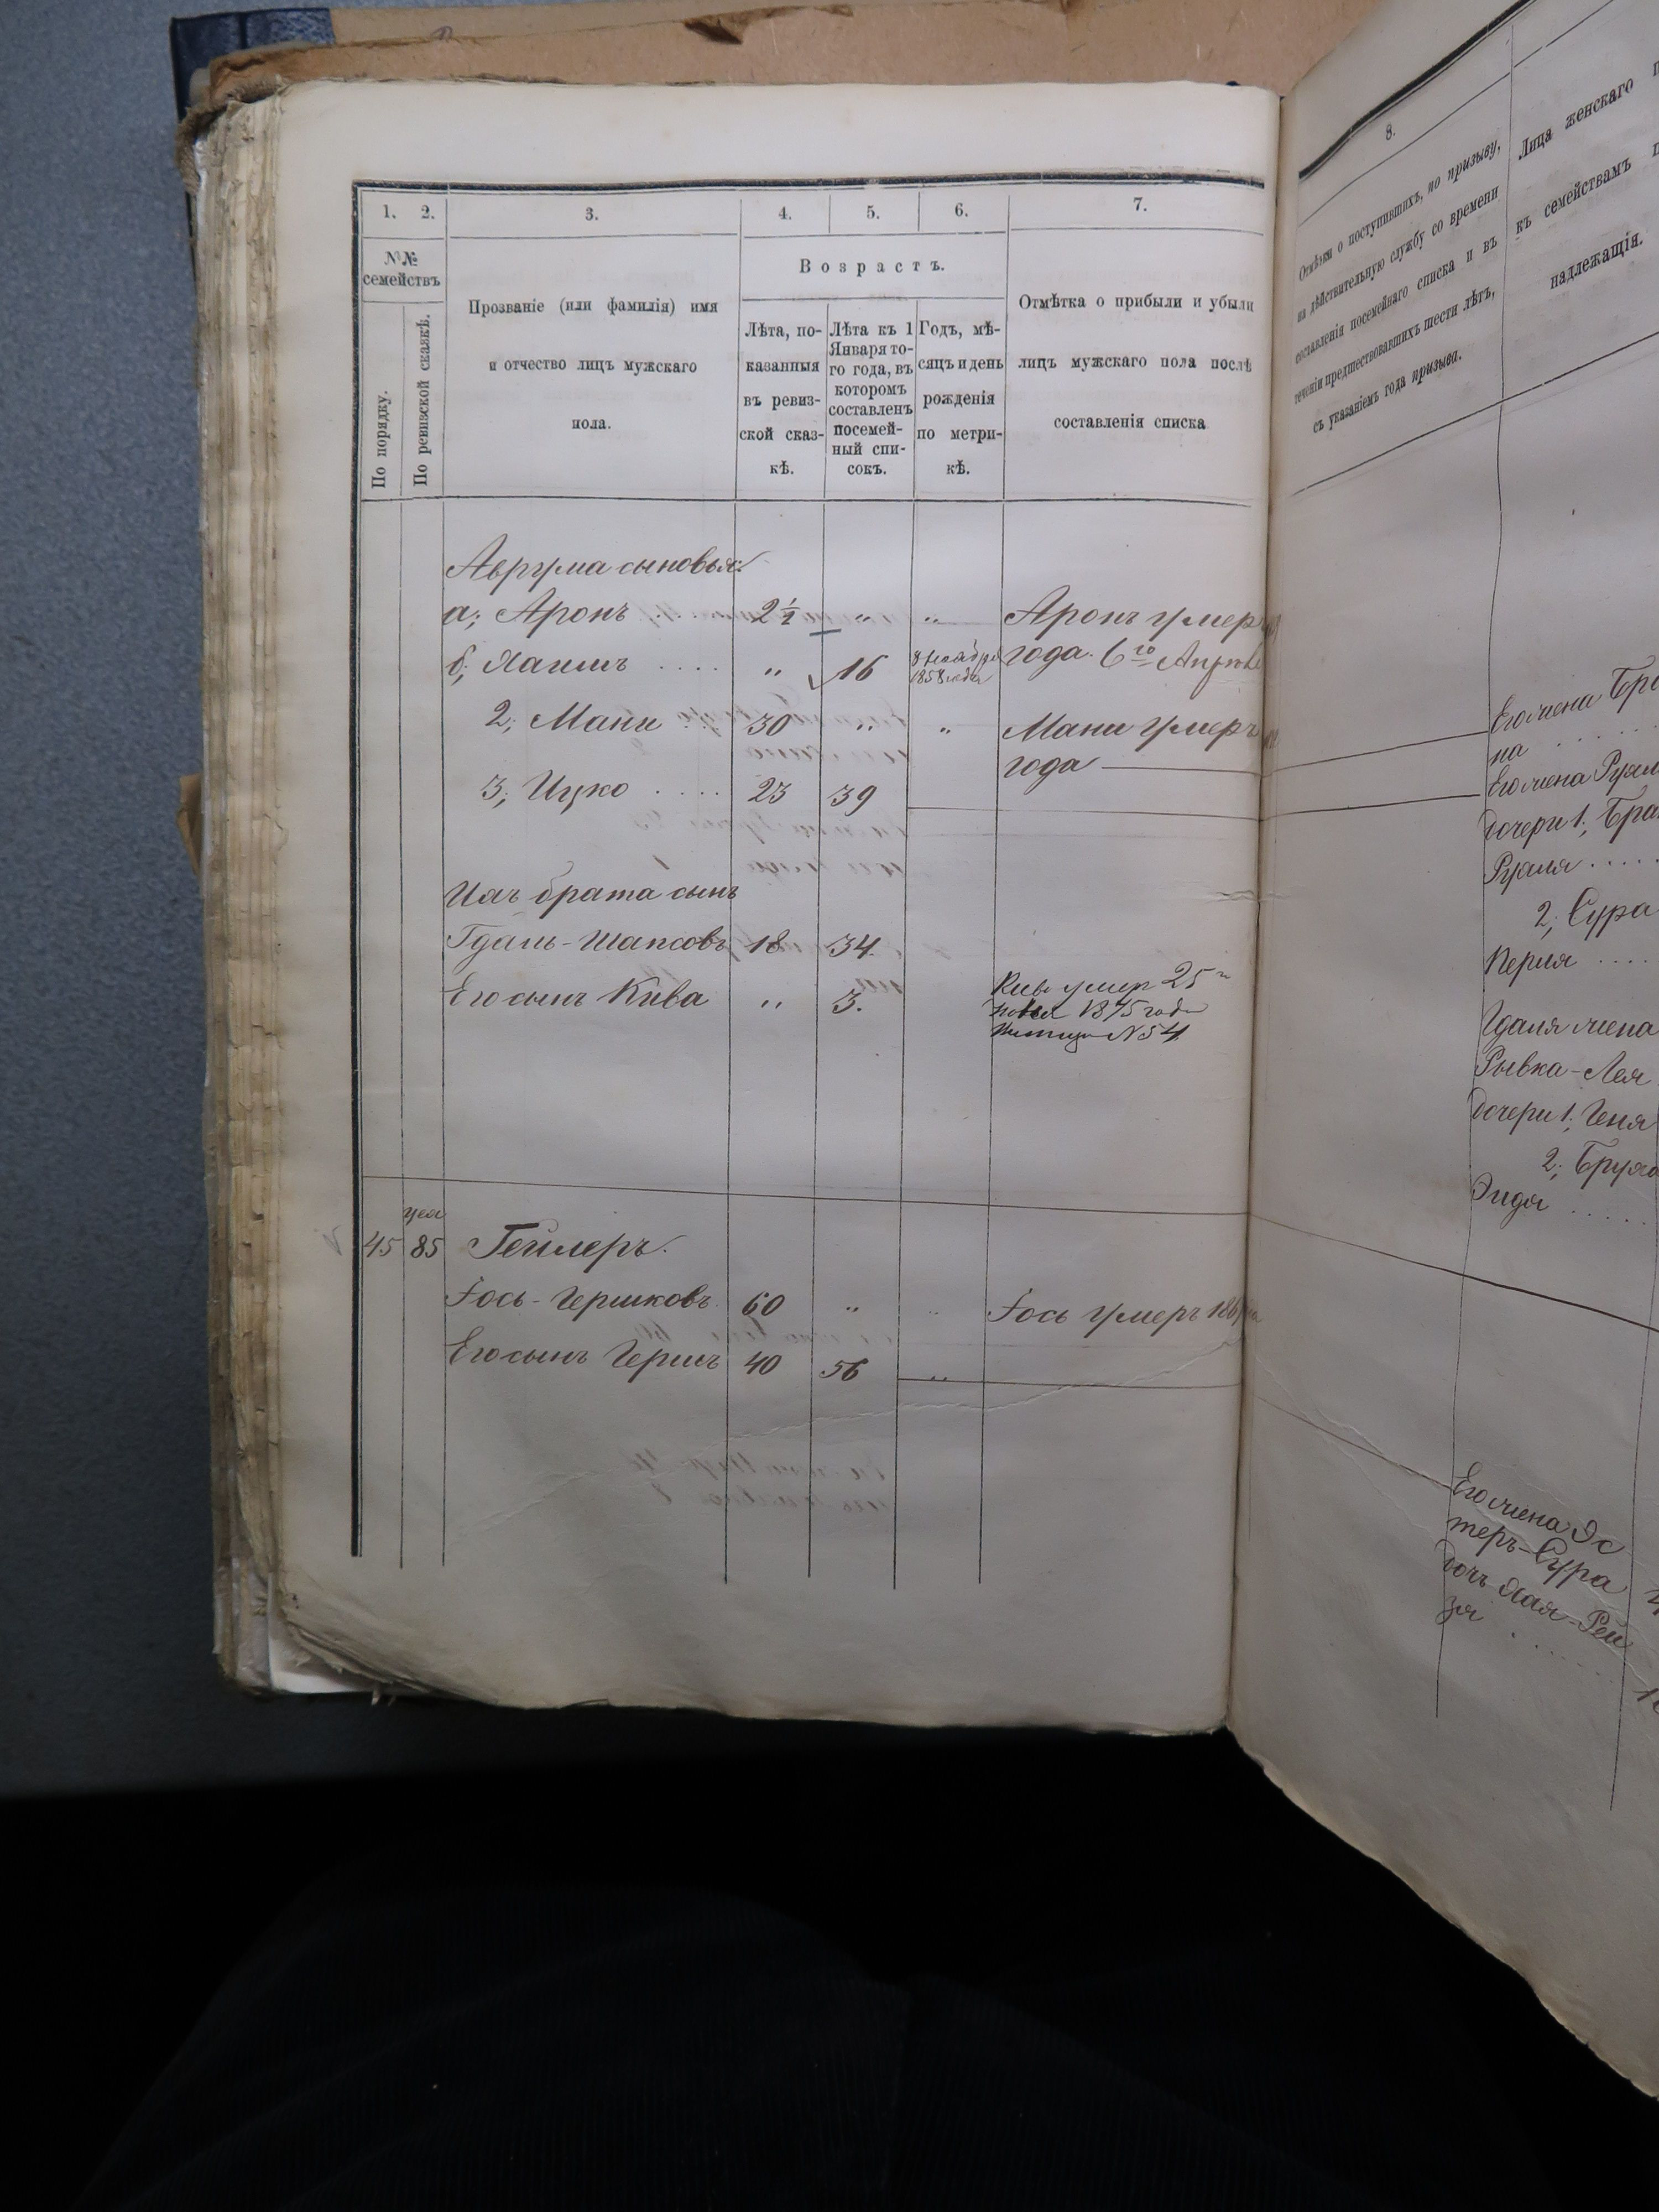 1. 2. 3. 4. 5. 6. 7.
№№ семействъ
По порядку.
По ревизской сказкѣ.
Прозваніе (или фамилія) имя
и отчество лицъ мужскаго
пола.
Возрастъ.
Лѣта, по-
казанныя
въ ревиз-
ской сказ-
кѣ.
Лѣта къ 1
Января то-
го года, въ
которомъ
составленъ
посемей-
ный спи-
сокъ.
Годъ, мѣ-
сяцъ и день
рожденія
по метри-
кѣ.
Отмѣтка о прибыли и убыли
лицъ мужскаго пола послѣ
составленія списка
Аврума сыновья:
а; Аронъ 2½ " " Аронъ умеръ
б; Хаимъ .... " 16 8 Ноября 1858 года года 6го Апрѣля
2; Мани 30 " " Мани умеръ
года
3; Ицко .... 23 39
Ихъ брата сынъ
Гдаль-Шапсовъ 18 34.
Его сынъ Кива " 3. Кива умер 25
1875 года
№ 54
45 85 Геллеръ.
Іось-Гершковъ 60 " " Іось умеръ 186
Его сынъ Гершъ 40 56 "
8.
Отмѣтки о поступившихъ, по призыву,
на дѣйствительную службу со времени
составленія посемейнаго списка и въ
теченіи предшествовавшихъ шести лѣтъ,
съ указаніемъ года призыва.
Лица женскаго
къ семействамъ
надлежащія.
Его жена
на
Его жена Рухля
Дочери 1;
Рухля .....
2; Сура
Перля ....
Гдаля жена
Рывка-Лея
Дочери 1; Геня
2;
Эидя .....
Его жена Эс
теръ-Сура
Дочь Хая-Реи
зя .....